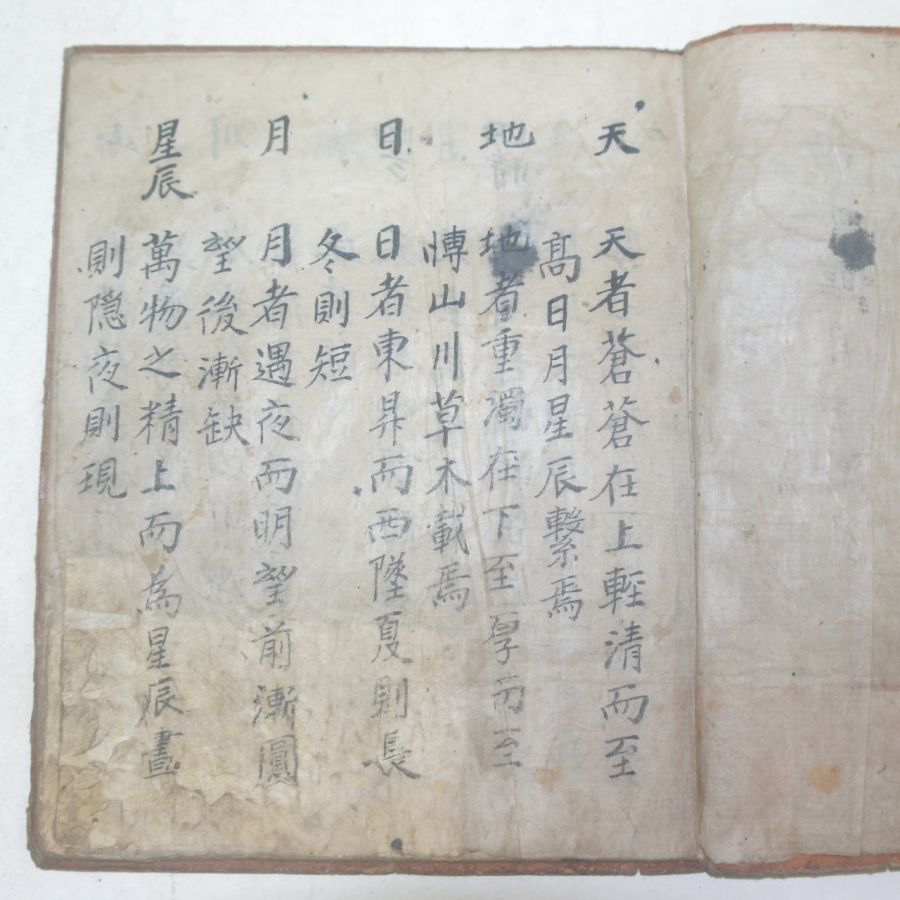 天 天者蒼蒼在上輕清而至
高日月星辰繫焉
地 地者重濁在下至厚而至
博山川草木載焉
日 日者東昇而西墜夏則長
冬則短
月 月者遇夜而明望前漸圓
望後漸缺
星辰 萬物之精上而為星辰晝
則隠夜則現